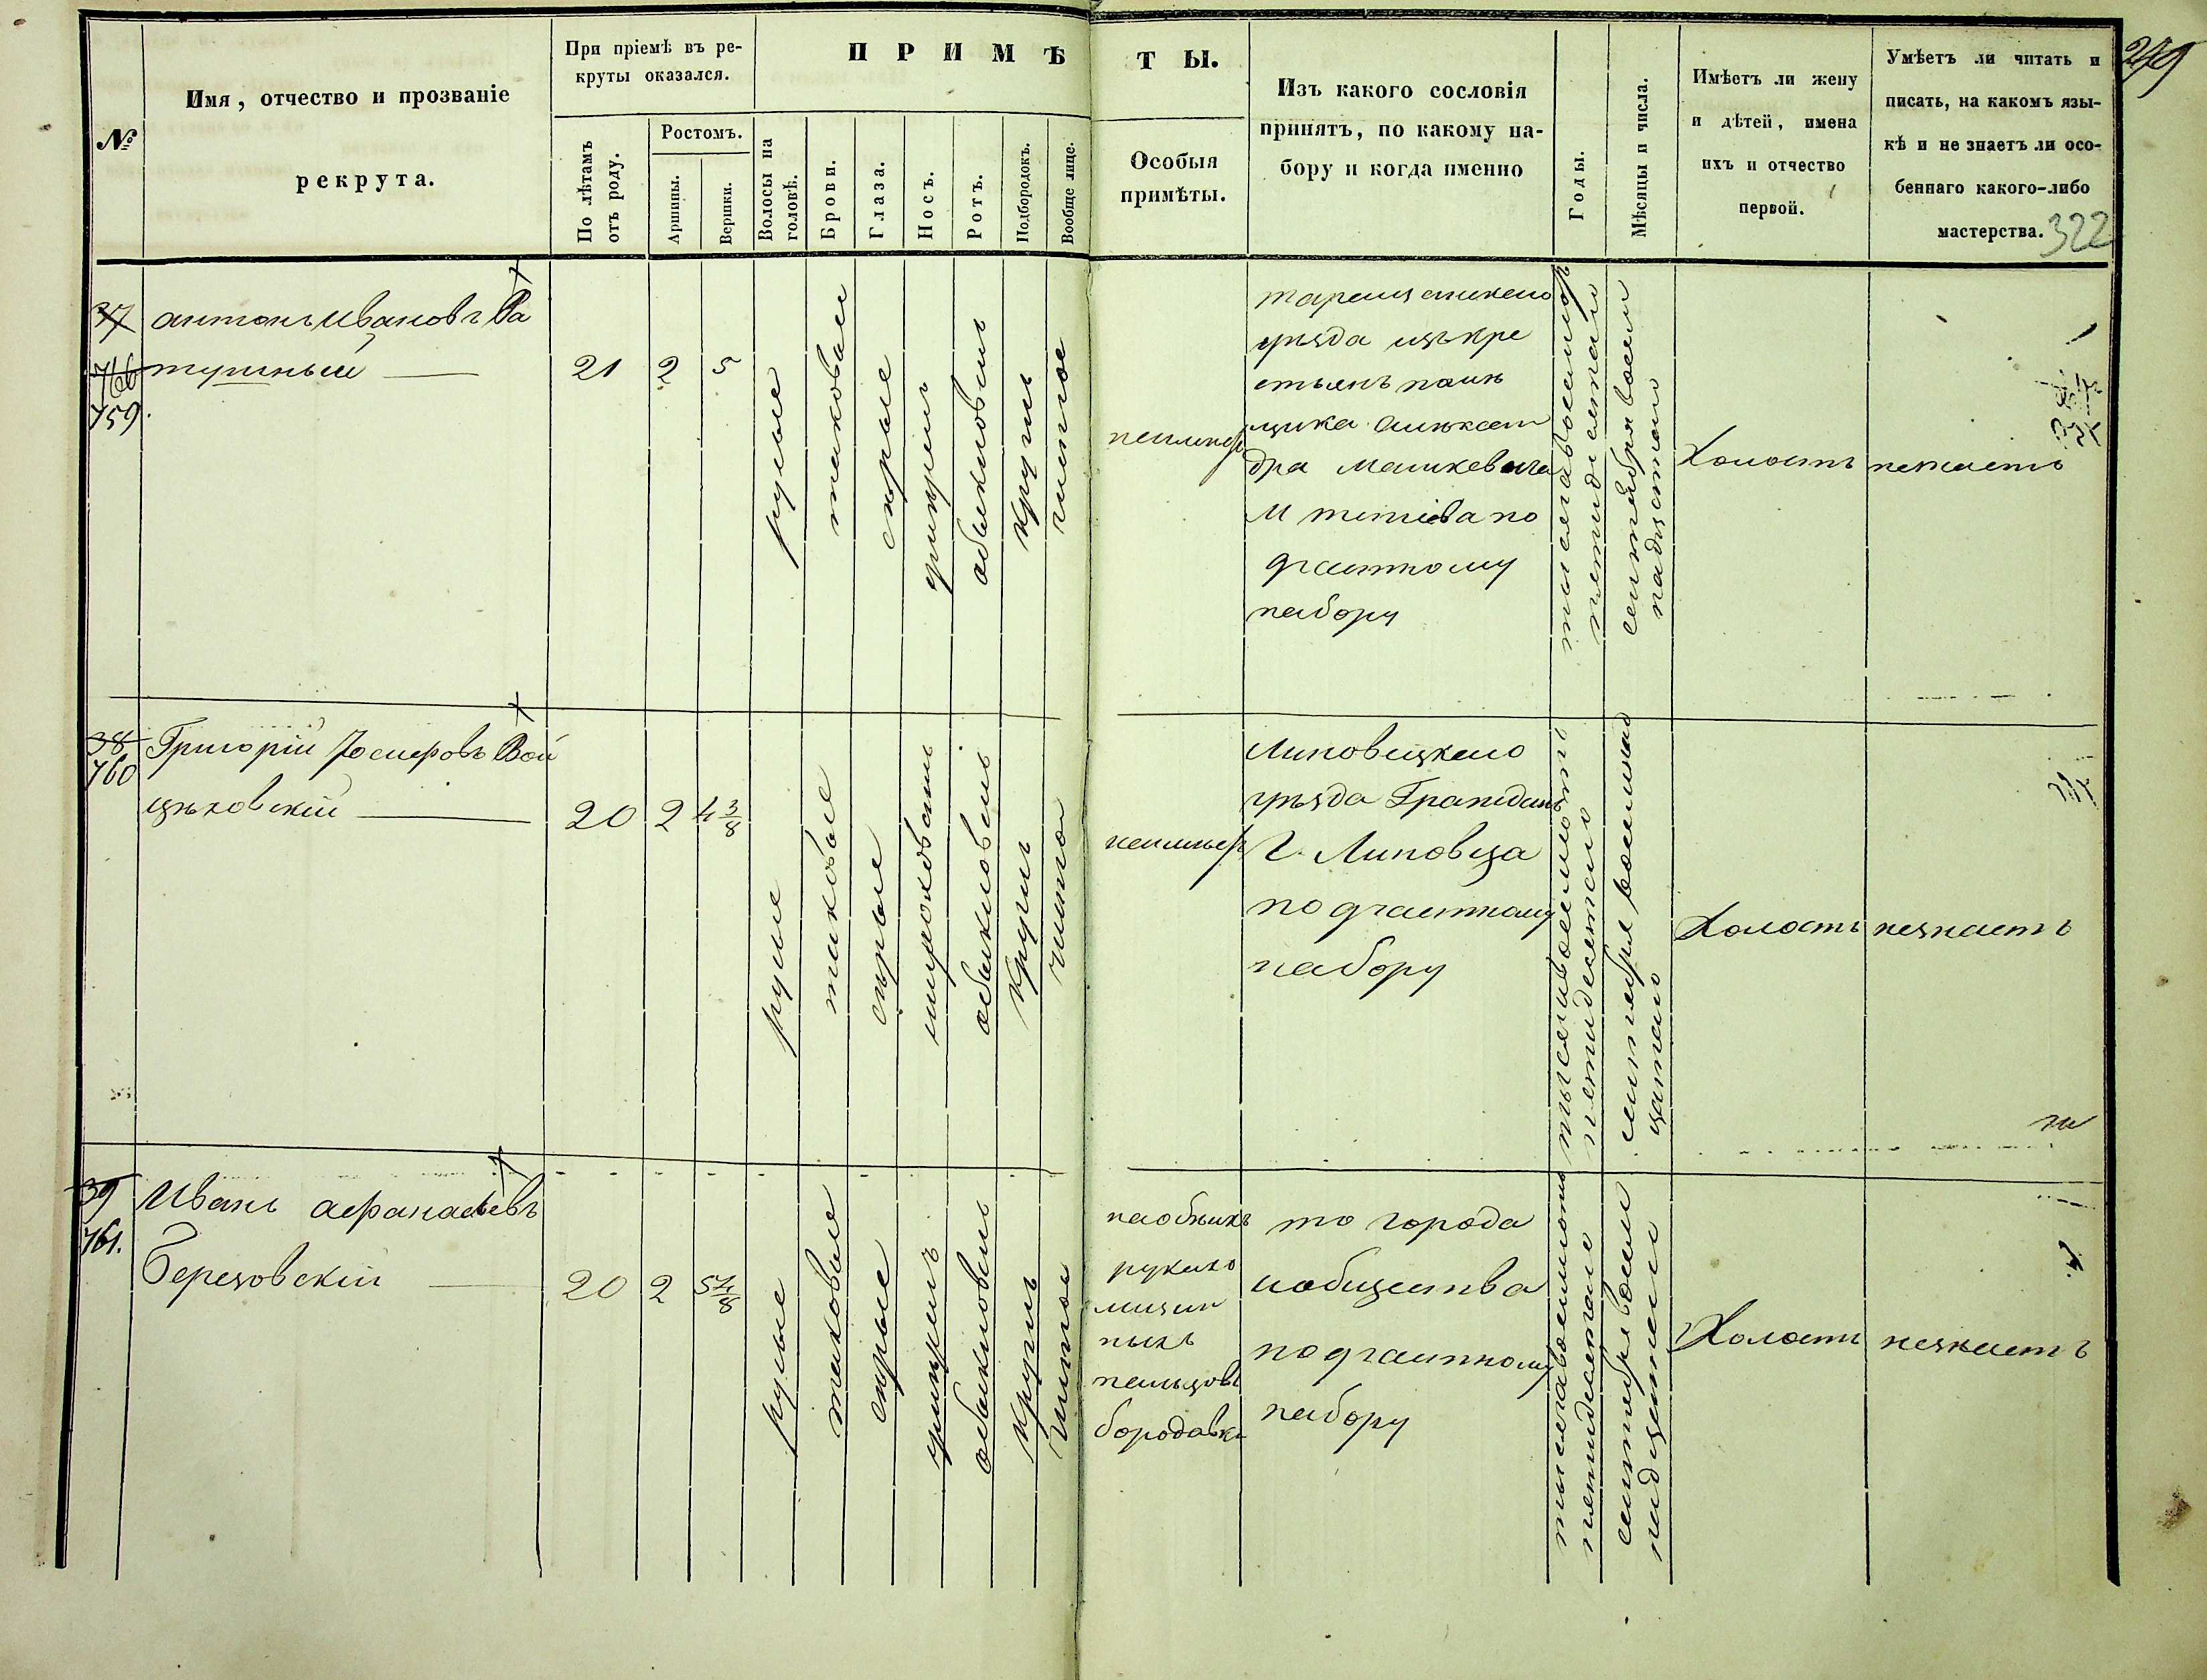 249
322
№
Имя, отчество и прозваніе
рекрута.
При пріемѣ въ ре-
круты оказался.
По лѣтамъ
отъ роду.
Ростомъ.
Аршины.
Вершки.
ПРИМѢТЫ.
Волосы на
головѣ.
Брови.
Глаза.
Носъ.
Ротъ.
Подбородокъ.
Вообще лице.
Особыя
примѣты.
Изъ какого сословія
принятъ, по какому на-
бору и когда именно
Годы.
Мѣсяцы и числа.
Имѣетъ ли жену
и дѣтей, имена
ихъ и отчество
первой.
Умѣетъ ли читать и
писать, на какомъ язы-
кѣ и не знаетъ ли осо-
беннаго какого-либо
мастерства.
37
759.
антонъ Ивановъ Ра
тушный
21
2
5
русые
таковые
серые
умѣренъ
обыкновенъ
круглъ
чистое
неимѣетъ
таращанскаго
уѣзда изъ кре
стьянъ помѣ
щика Алѣксан
дра
по
частному
набору
тысяча восемьсотъ
пятидесятаго
сентября восем
надцатаго
Холостъ
незнаетъ
38
760
Григорій Іосифовъ Вой
цѣховскій
20
2
4 3/8
русые
таковые
серые
обыкновенъ
круглъ
чистое
неимѣетъ
Липовецкаго
уѣзда Граждань
Г. Липовца
по частному
набору
тысяча восемьсотъ
пятидесятаго
сентября восемнад
цатаго
Холостъ
незнаетъ
39
761.
Иванъ афанасьевъ
Березовскій
20
2
5 4/8
русые
таковые
серые
умѣренъ
обыкновенъ
круглъ
чистое
наобѣихъ
рукахъ
мизин
ныхъ
пальцовъ
бородавки
то города
иобщества
по частному
набору
тысяча восемьсотъ
пятидесятаго
сентября восем
надцатаго
Холостъ
незнаетъ